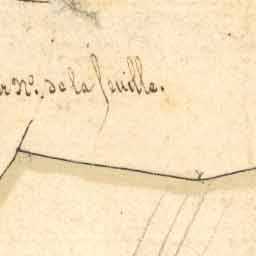 r N°. de la feuille.